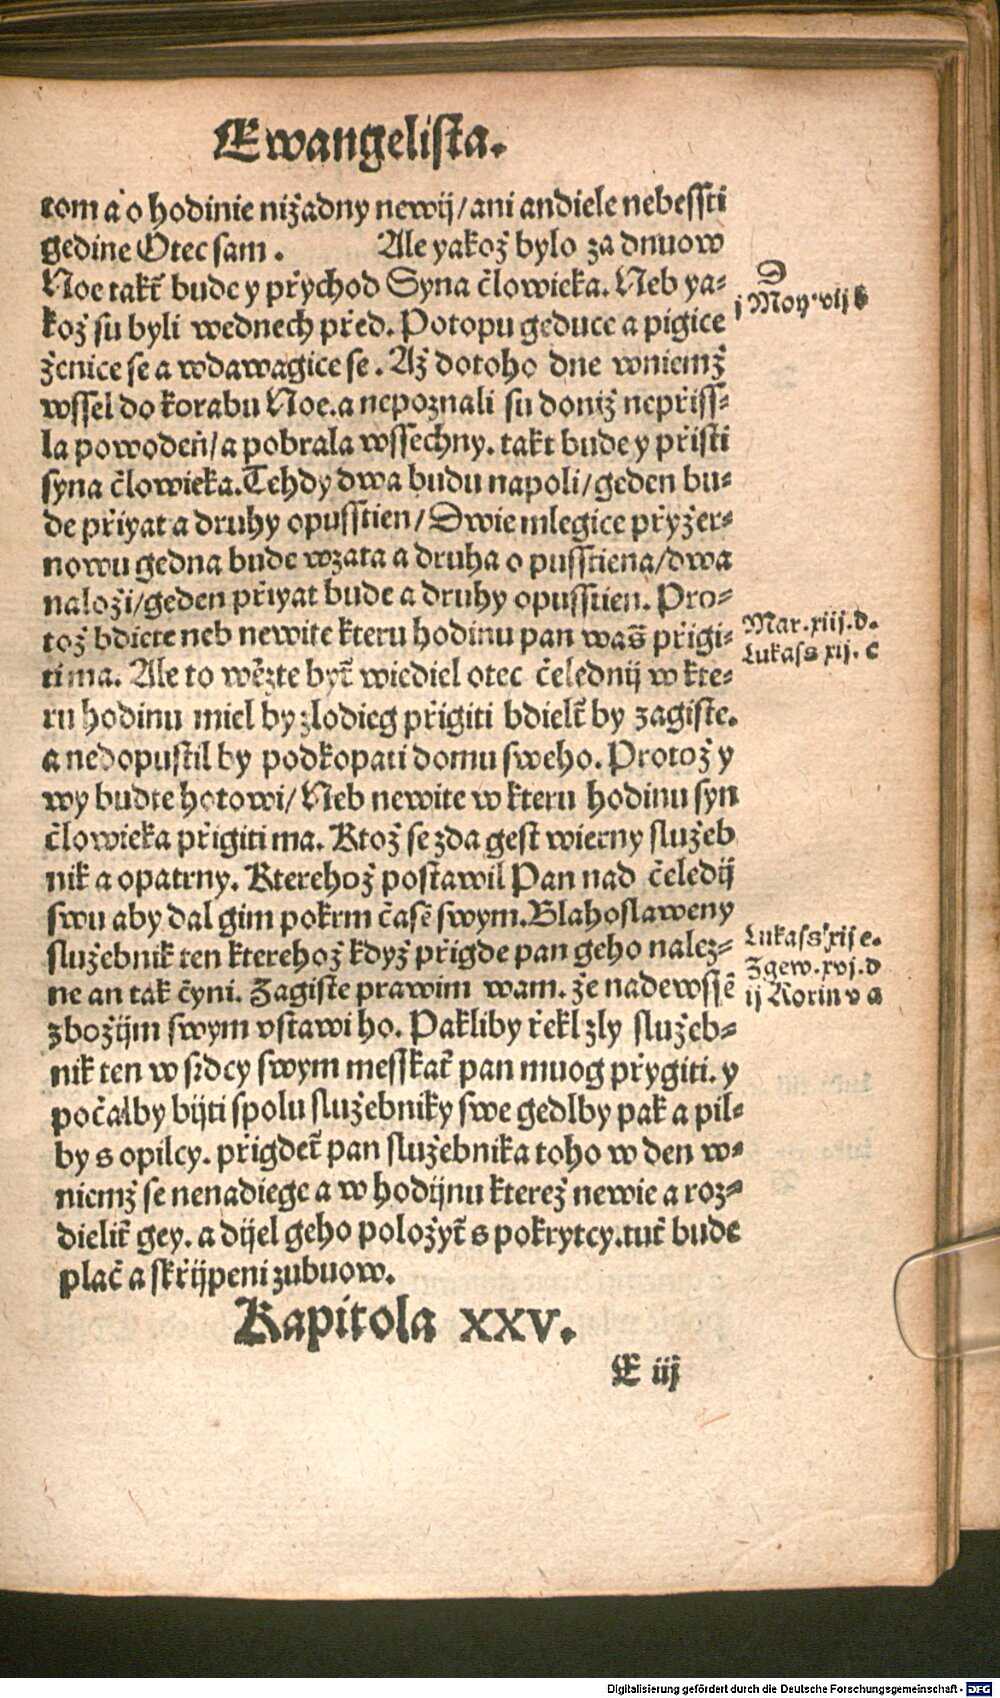 Ewangelista.
tom a o hodinie nižadny newij/ani andiele nebessti
gedine Otec sam. Ale yakož bylo za dnuow
Noe takť bude y přychod Syna člowieka. Neb ya-
kož su byli wednech před. Potopu geduce a pigice
ženice se a wdawagice se. Až dotoho dne wniemž
wssel do korabu Noe.a nepoznali su doniž nepřiss-
la powodeň/a pobrala wssechny. takt bude y přisti
syna člowieka.Tehdy dwa budu napoli/geden bu-
de přiyat a druhy opusstien/Dwie mlegice pryžer-
nowu gedna bude wzata a druha o pusstiena/dwa
naloži/geden přiyat bude a druhy opusstien. Pro-
tož bdiete neb newite kteru hodinu pan waš přigi-
ti ma. Ale to wězte byť wiediel otec čelednij w kte-
ru hodinu miel by zlodieg přigiti bdielť by zagiste.
a nedopustil by podkopati domu sweho. Protož y
wy budte hotowi/Neb newite w kteru hodinu syn
člowieka přigiti ma. Ktož se zda gest wierny služeb
nik a opatrny. Kterehož postawil Pan nad čeledij
swu aby dal gim pokrm časē swym.Blahoslaweny
služebnik ten kterehož když přigde pan geho nalez-
ne an tak čyni. Zagiste prawim wam. že nadewssē
zbožijm swym vstawi ho. Pakliby řekl zly služeb-
nik ten w srdcy swym messkať pan muog přygiti. y
počalby bijti spolu služebniky swe gedlby pak a pil-
by s opilcy. přigdeť pan služebnika toho w den w-
niemž se nenadiege a w hodijnu kterež newie a roz-
dieliť gey. a dijel geho položyť s pokrytcy.tuť bude
plač a skřijpeni zubuow.
Kapitola XXV.
E iij
D
j Moy. vij b
Mar. xiij. d.
Lukass xij. c
Lukass xij e.
Zgew. xvj. d
ij Korin v a
Digitalisierung gefördert durch die Deutsche Forschungsgemeinschaft - DFG